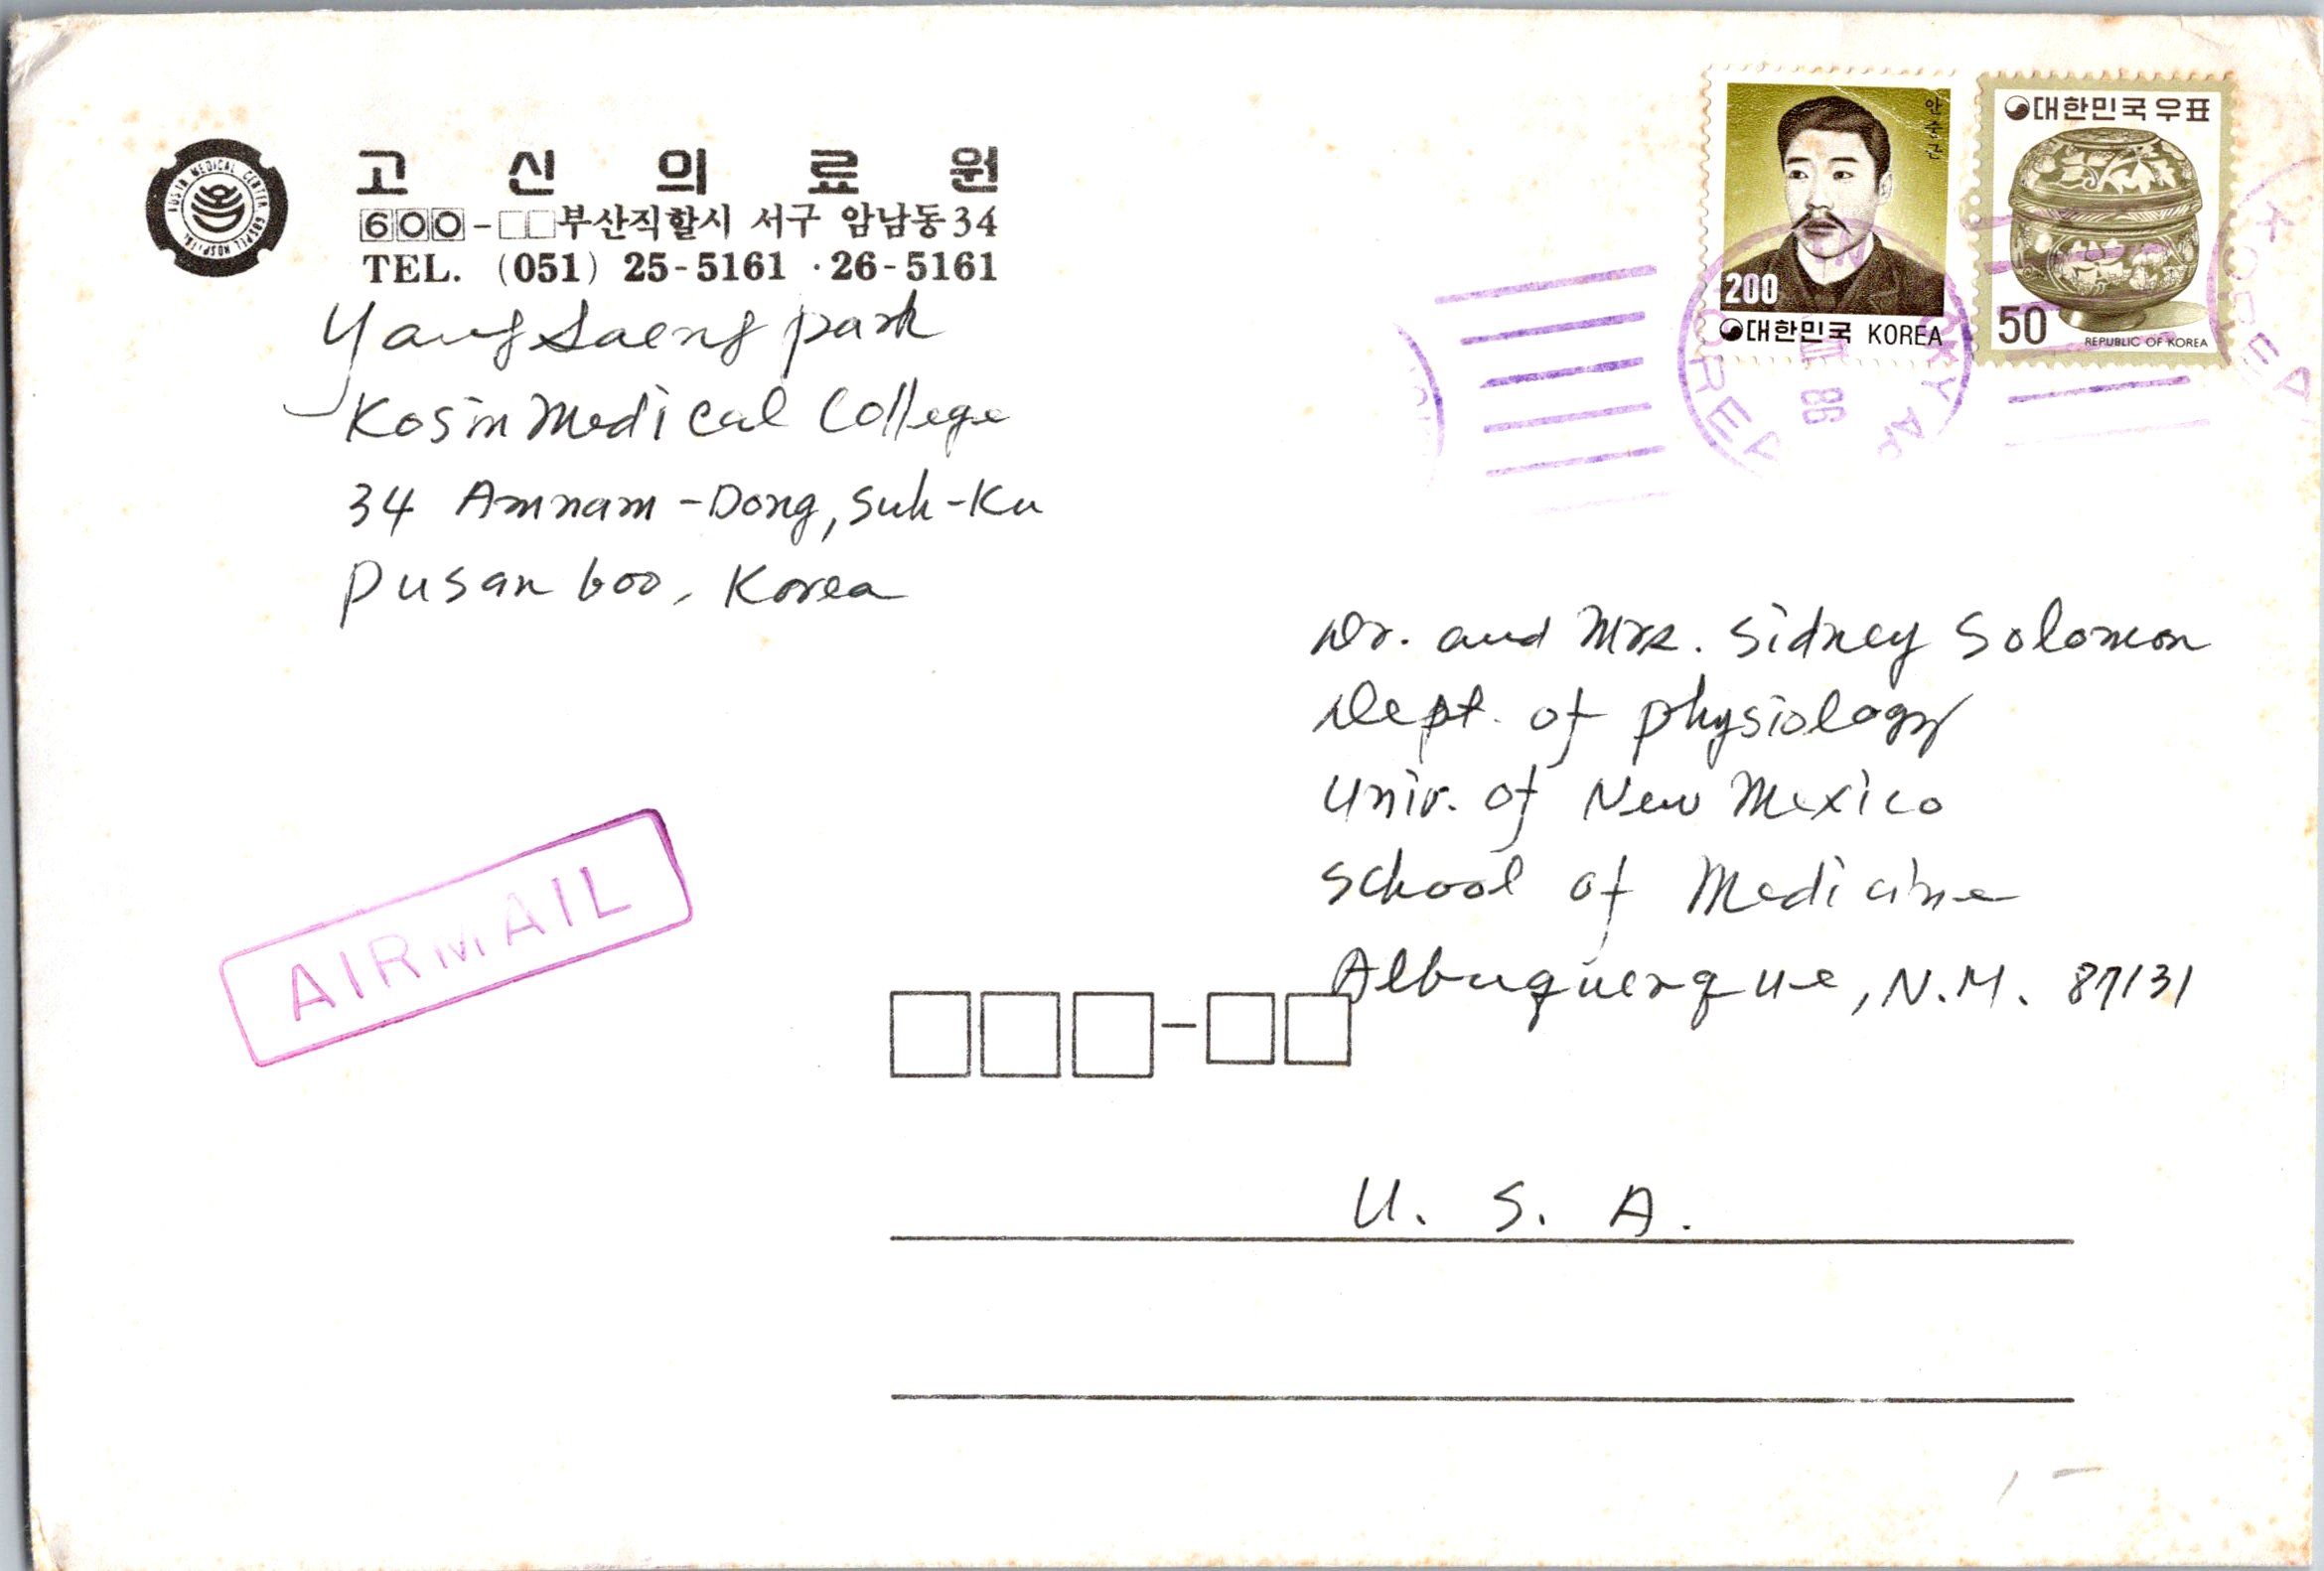 KOSIN MEDICAL CENTER GOSPEL HOSPITAL
고신의료원
600-□□부산직할시 서구 암남동34
TEL. (051) 25-5161 · 26-5161
Yang Saeng park
Kosin Medical College
34 Amnam-Dong, Suh-Ku
Pusan 600, Korea
안중근
200
대한민국 KOREA
대한민국우표
50
REPUBLIC OF KOREA
KOREA
86
KOREA
Dr. and Mrs. Sidney Solomon
Dept. of physiology
Univ. of New Mexico
School of Medicine
Albuquerque, N.M. 87131
U. S. A.
AIRMAIL